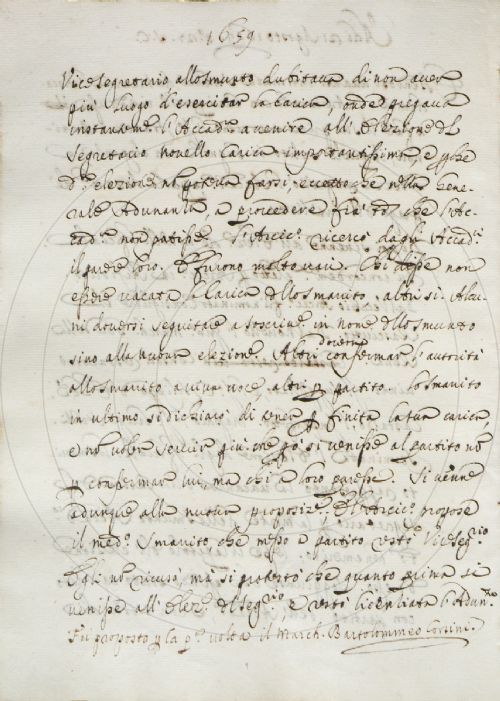 1659
Vicesegretario allo Smunto dubitava di non aver
più luogo d'esercitar la Carica, onde pregava
instantem.e l'Accad.a a venire all'Elezione del
Segretario novello Carica importantissima, e che
d.a elezione nō poteva farsi, eccetto che nella Gene-
rale Adunanza, a procedere fra tō che l'Ac-
cad.a non patisse. L'Arcic.o ricercò dagli Accad.i
il parer loro. E furono molto varii. Chi disse non
essere vacata la Carica dello Smarrito, altri sì. Alcu-
ni doversi seguitare a scriver in nome dello Smunto
sino alla nuova elezione. Altri doversi confermar l'autorità
allo Smarrito a viva voce, altri p partito. Lo Smarrito
in ultimo si dichiarò di aver p finita la sua carica,
e nō voler servir più che però si venisse al partito nō
p confermar lui, ma chi a loro paresse. Si venne
adunque alla nuova proposiz.e. L'Arcic.o propose
il med.o Smarrito che messo a partito restò Viceseg.rio
Egli nō ricusò, ma si protestò che quanto prima si
venisse all'Elez.e del Seg.rio e restò licenziata l'Adun.za
Fu proposto p la p.a volta il March. Bartolommeo Corsini.